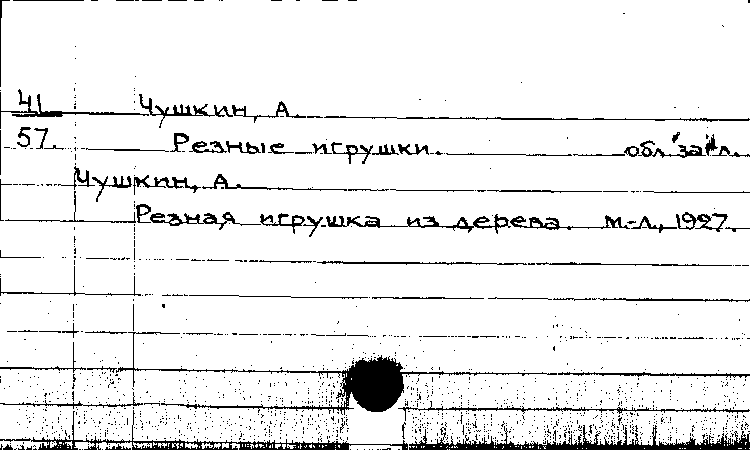 41 Чушкин, А.
57. Резные игрушки. обл. загл.
Чушкин, А.
Резная игрушка из дерева. М.-Л., 1927.